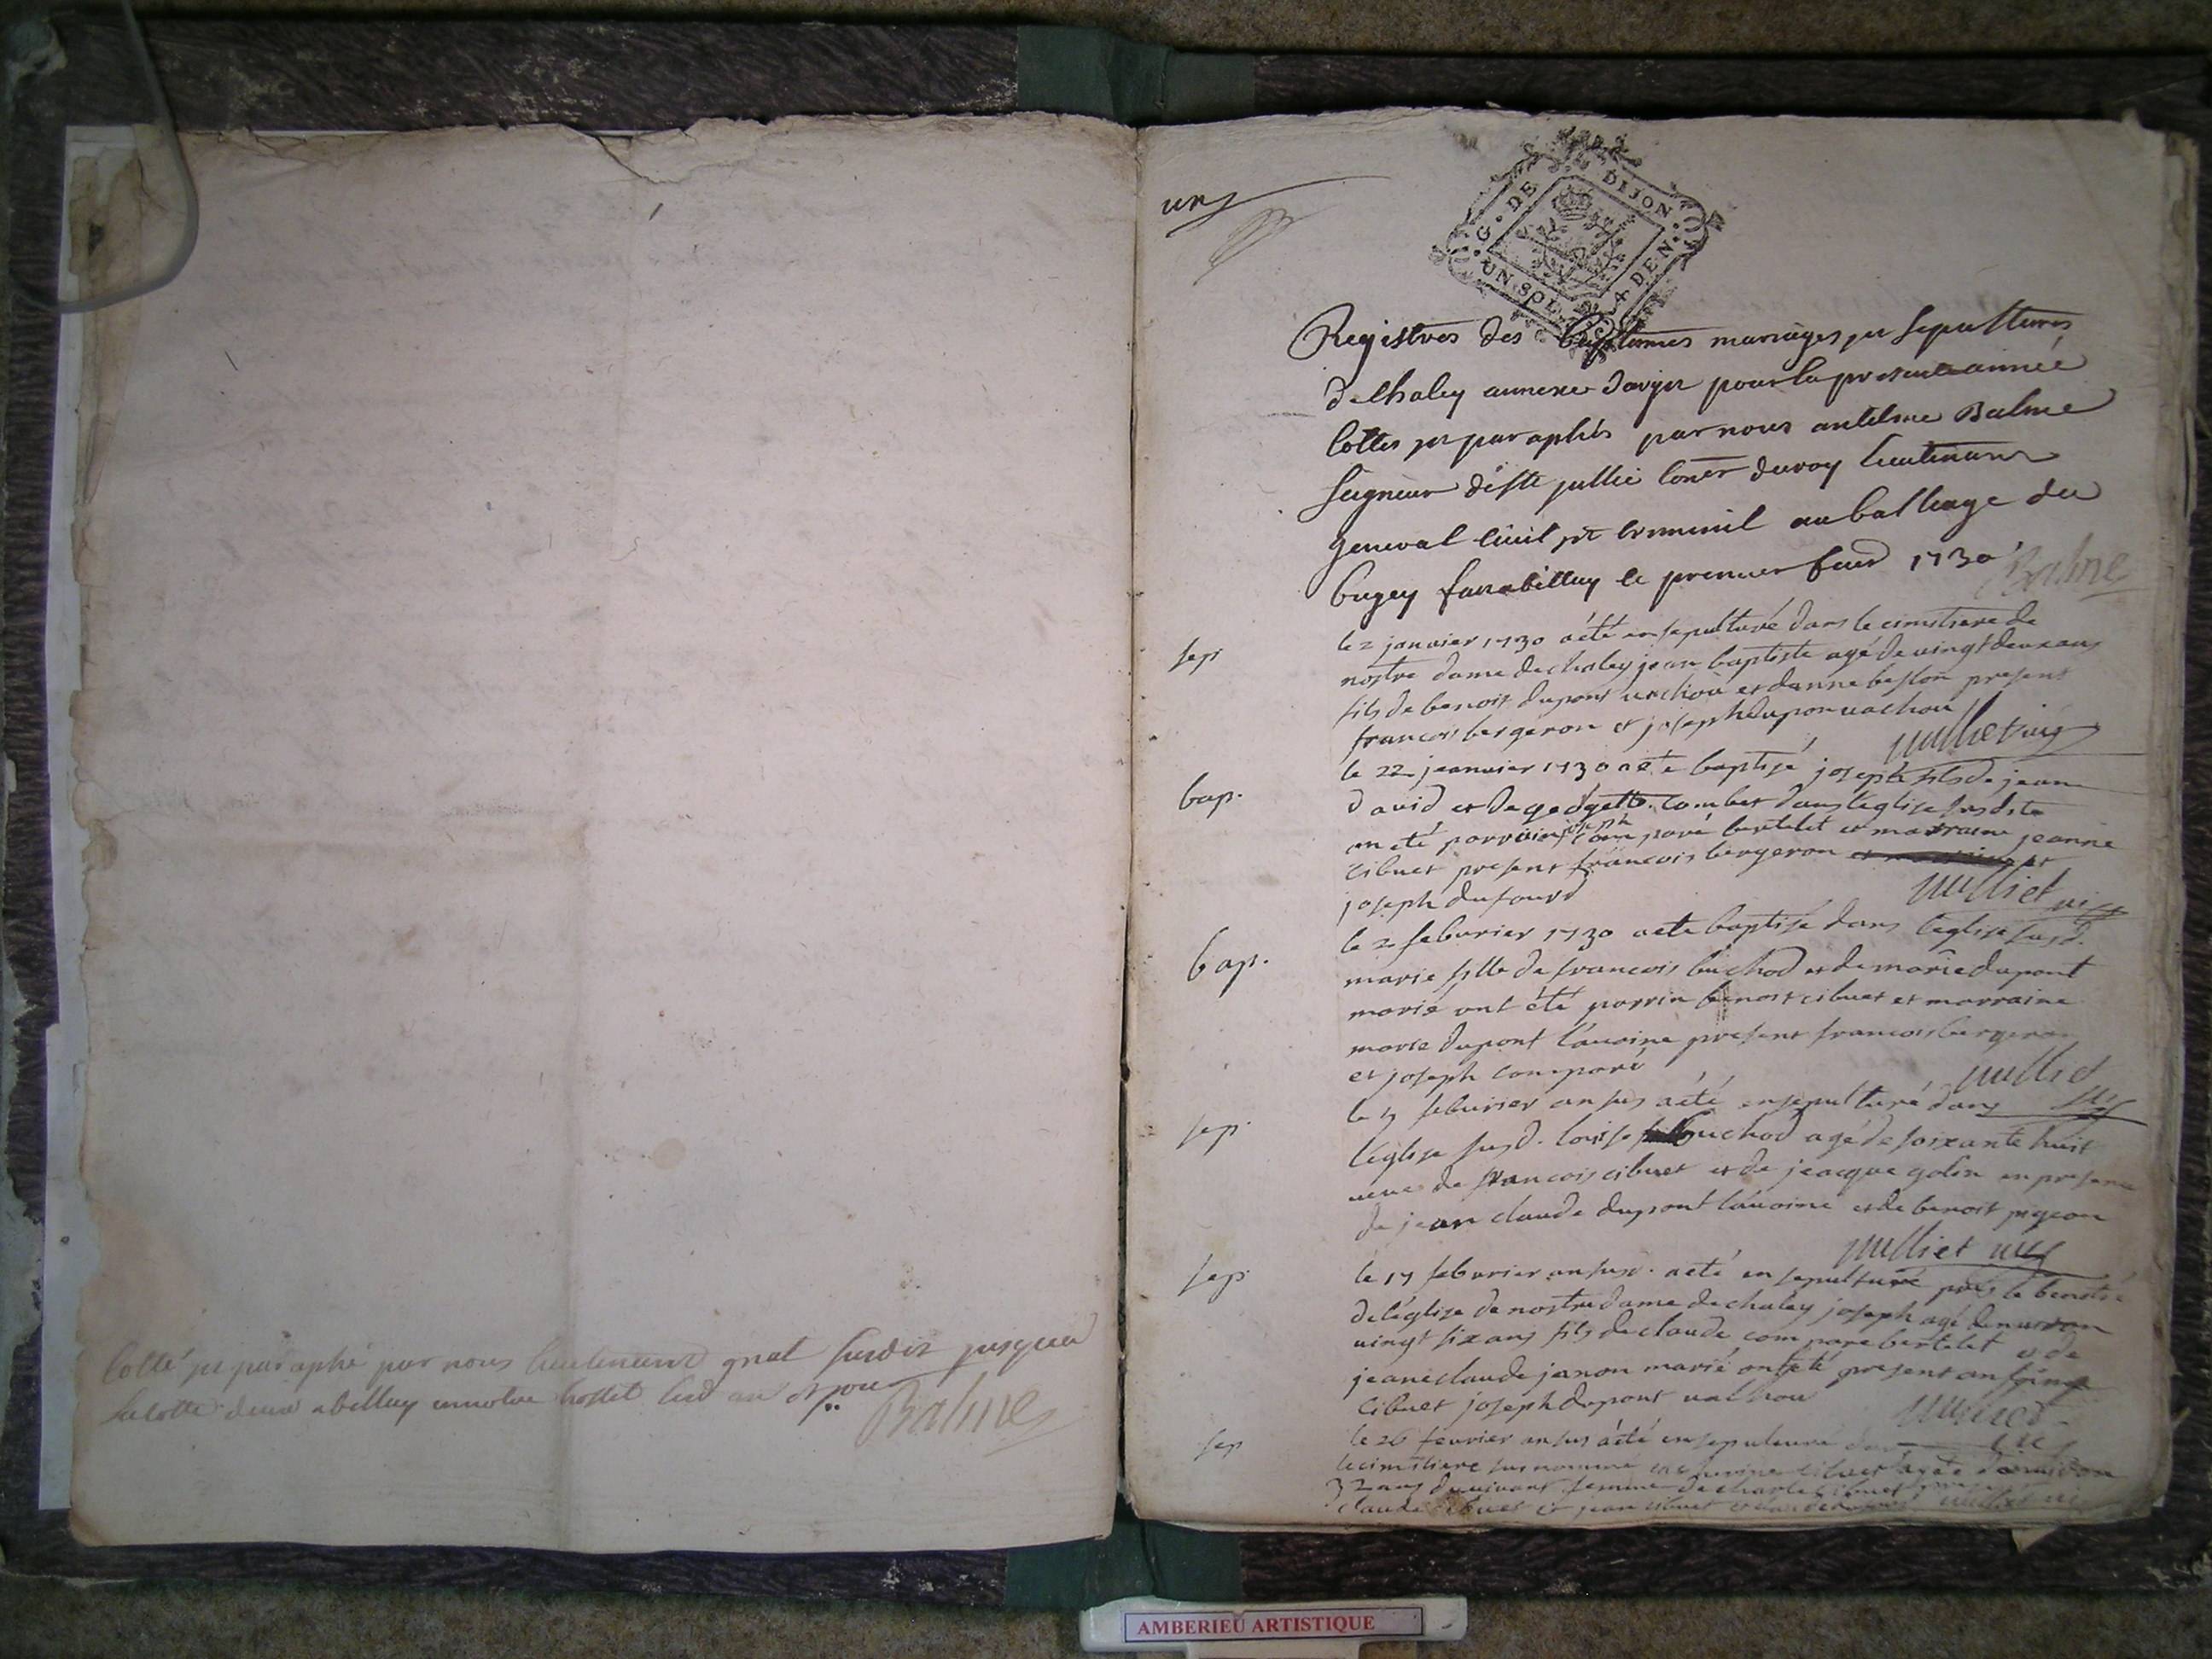 Cotté et paraphé par nous lieutenant gnal susdit jusqua
la cotte deux a belley en notre hostel lesd an et jour
Balme
un
G. DE DIJON
UN SOL 4 DEN.
Registres des Baptemes mariages et sepultures
de Chaley annexe darger pour la presente année
Cottes et paraphés par nous antelme Balme
Seigneur de ste jullie Coner du roy lieutenant
general Civil et Criminel au balliage du
bugey fait a billay le premier 1730
Balme
sep
le 2 janvier 1730 a été ensepulturé dans le cimitiere de
nostre dame de chaley jean baptiste agé de vingt deux ans
fils de benoit dupont vachou et danne beslon present
francois bergeron et joseph dupon vachou
jullliet vic
bap.
le 22 jeanvier 1730 a été baptisé joseph fils de jean
david et de georgette combet dans léglise susdite
on eté parrain joseph comparé bertelet et marraine jeanne
cibuet present francois bergeron et
joseph dufourd
julliet vic
bap.
le 2 feburier 1730 a ete baptisé dans léglise susd.
marie fille de francois buchod et de marie dupont
marié ont été parrin benoit cibuet et marraine
marie dupont lavoine present francois bergeron
et joseph comparé
julliet vic
sep.
le 5 feburier an sus a été ensepulturé dans
léglise susd. loise buchod agé de soixante huit
veuve de francois cibuet et de jeacque golin en presence
de jean claude dupont lavoine et de benoit pigeon
julliet vic
sep
le 17 feburier an sus. a eté ensepulturé près le benotié
de léglise de nostre dame de chaley joseph agé denviron
vingt six ans fils de claude compare bertelet et de
jeane claude janon marié on été present antoine
cibuet joseph dupont vachou
julliet vic
sep
le 26 fevrier an sus a été ensepulturé dans
le cimitiere susnommé cibuet agée denviron
32 ans du vivant femme de charle cibuet
claude cibuet et jean cibuet julliet vic
AMBERIEU ARTISTIQUE